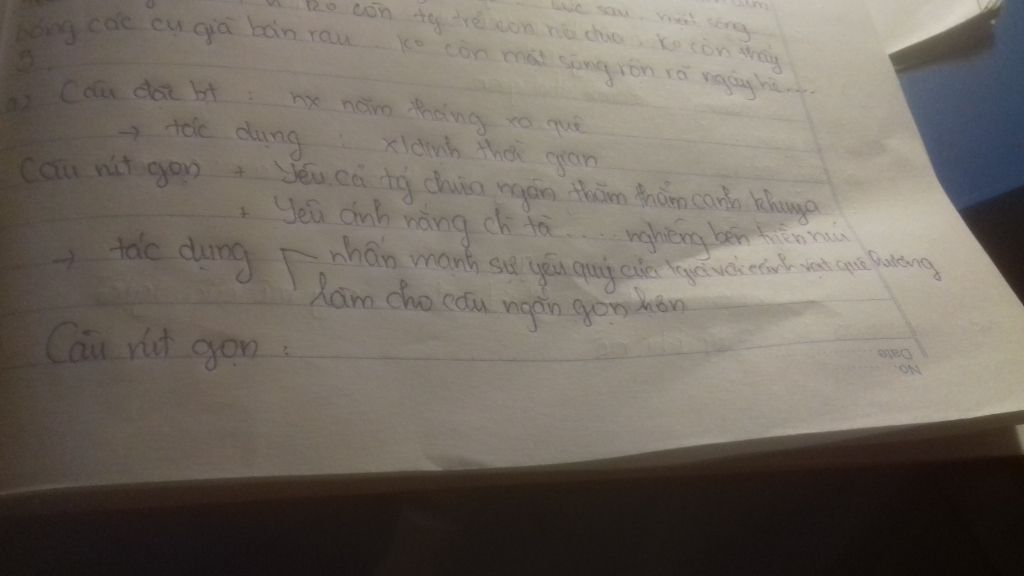 Ko còn tụ trẻ con nô đùa. Ko còn thấy
bóng các cụ già bán rau. Ko còn mát sáng rộn rã ngày hè....
a) Câu đặc bt : nx năm tháng xa quê
→ tác dụng : x/định thời gian
Câu rút gọn + Yêu cả tg chùa ngân thăm thẳm canh khuya
+ Yêu ánh nắng ch tà ..... nghiêng bên triền núi
→ tác dụng nhấn mạnh sự yêu quý của tgiả với cảnh vật quê hương
làm cho câu ngắn gọn hơn
Câu rút gọn :
No.
Date